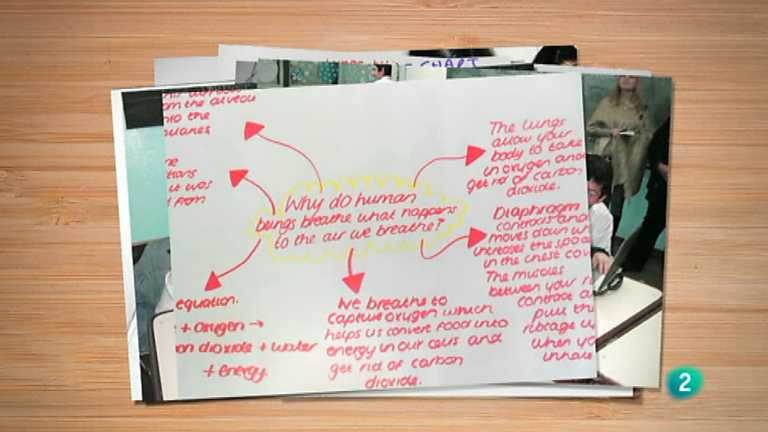 CHART
from the alveoli
into the
it was
from
Why do human
beings breathe what happens
to the air we breathe?
The lungs
allow your
body to take
in oxygen and
get rid of carbon
dioxide.
Diaphragm
contracts and
moves down
increases the space
in the chest
The muscles
between your
contract
pull the
ribcage
when you
inhale
equation.
+ Oxygen →
dioxide + water
+ energy.
We breathe to
capture oxygen which
helps us convert food into
energy in our cells and
get rid of carbon
dioxide.
2